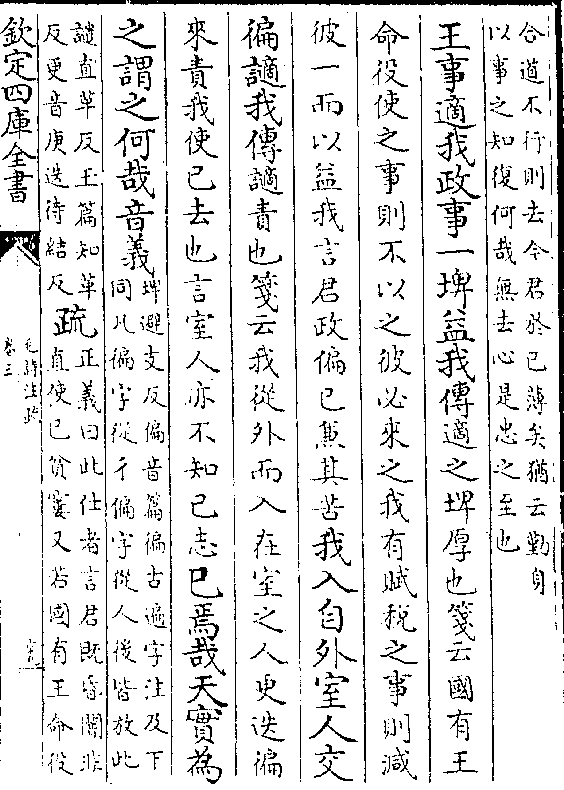 合道不行則去今君於已薄矣猶云勤身
以事之知復何哉無去心是忠之至也
王事適我政事一埤益我傳適之埤厚也箋云國有王
命役使之事則不以之彼必來之我有賦税之事則減
彼一而以益我言君政偏已兼其苦我入自外室人交
徧讁我傳讁責也箋云我從外而入在室之人更迭徧
來責我使已去也言室人亦不知已志已焉哉天實為
之謂之何哉音義埤避支反偏音篇徧古遍字注及下
同凡徧字從彳偏字從人後皆放此
讁直革反玉篇知革
反更音庚迭待結反疏正義曰此仕者言君既昏闇非
直使已貧窶又若國有王命役
欽定四庫全書
毛詩注疏
卷三